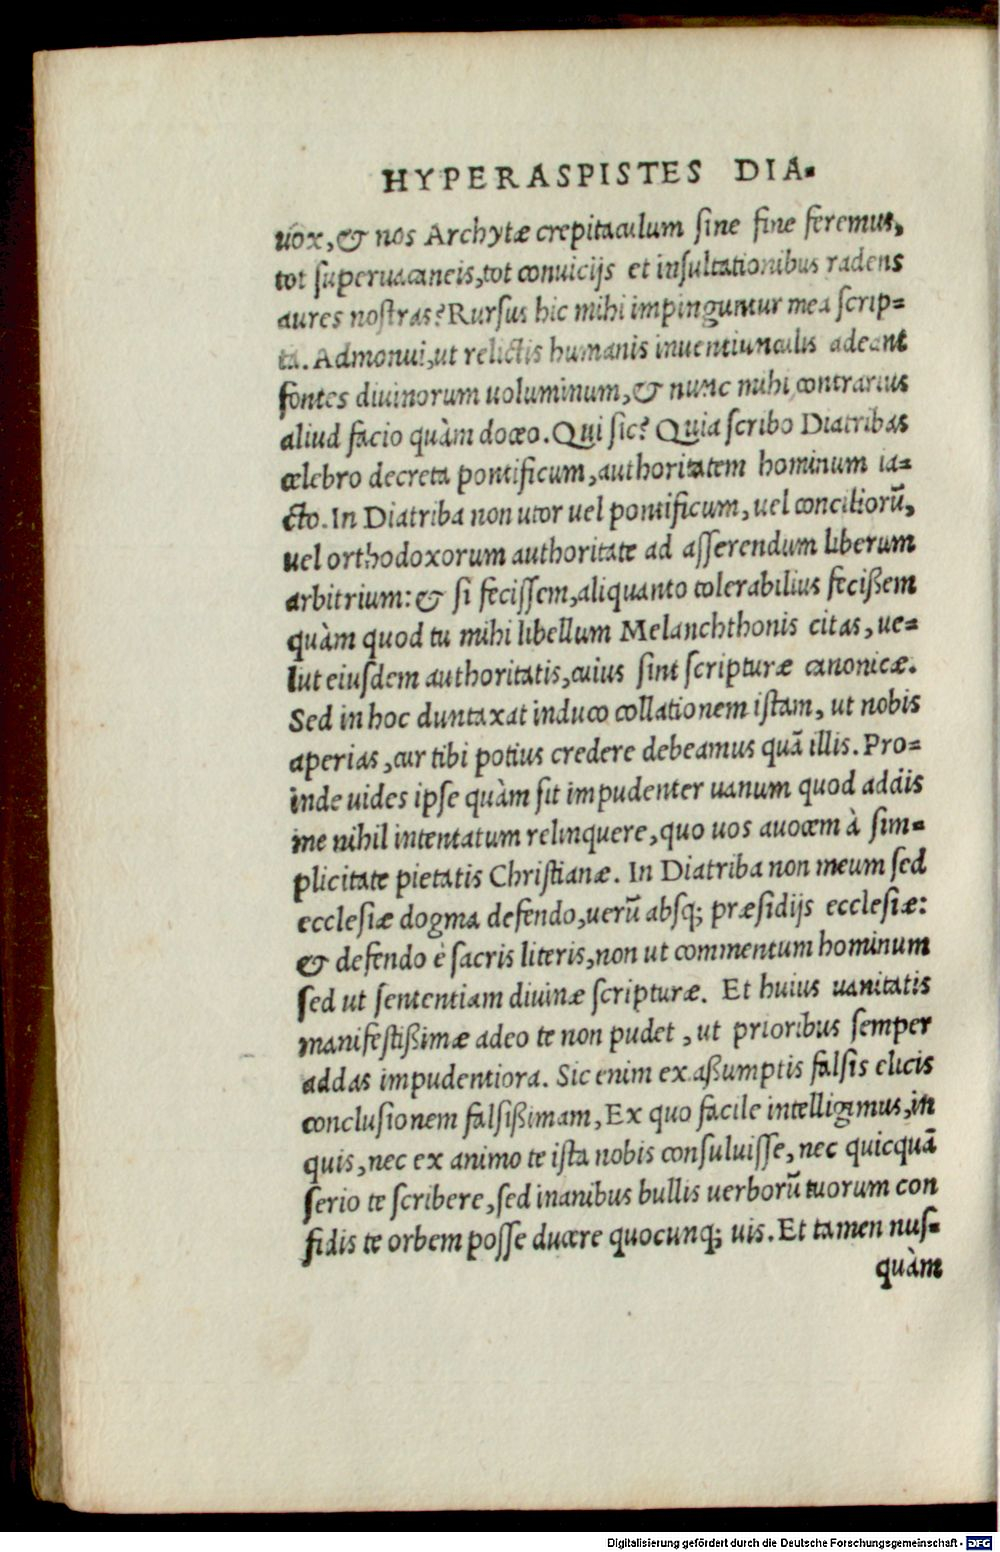 HYPERASPISTES DIA-
uox, & nos Archytæ crepitaculum sine fine feremus,
tot superuacaneis, tot conuicijs et insultationibus radens
aures nostras? Rursus hic mihi impinguntur mea scrip=
ta. Admonui, ut relictis humanis inuentiunculis adeant
fontes diuinorum uoluminum, & nunc mihi contrarius
aliud facio quàm doceo. Qui sic? Quia scribo Diatribas
celebro decreta pontificum, authoritatem hominum ia=
cto. In Diatriba non utor uel pontificum, uel conciliorũ,
uel orthodoxorum authoritate ad asserendum liberum
arbitrium: & si fecissem, aliquanto tolerabilius fecißem
quàm quod tu mihi libellum Melanchthonis citas, ue=
lut eiusdem authoritatis, cuius sint scripturæ canonicæ.
Sed in hoc duntaxat induco collationem istam, ut nobis
aperias, cur tibi potius credere debeamus quã illis. Pro=
inde uides ipse quàm sit impudenter uanum quod addis
me nihil intentatum relinquere, quo uos auocem à sim=
plicitate pietatis Christianæ. In Diatriba non meum sed
ecclesiæ dogma defendo, uerũ absq; præsidijs ecclesiæ:
& defendo è sacris literis, non ut commentum hominum
sed ut sententiam diuinæ scripturæ. Et huius uanitatis
manifestißimæ adeo te non pudet, ut prioribus semper
addas impudentiora. Sic enim ex aßumptis falsis elicis
conclusionem falsißimam, Ex quo facile intelligimus, in
quis, nec ex animo te ista nobis consuluisse, nec quicquã
serio te scribere, sed inanibus bullis uerborũ tuorum con
fidis te orbem posse ducere quocunq; uis. Et tamen nus=
quàm
Digitalisierung gefördert durch die Deutsche Forschungsgemeinschaft - DFG